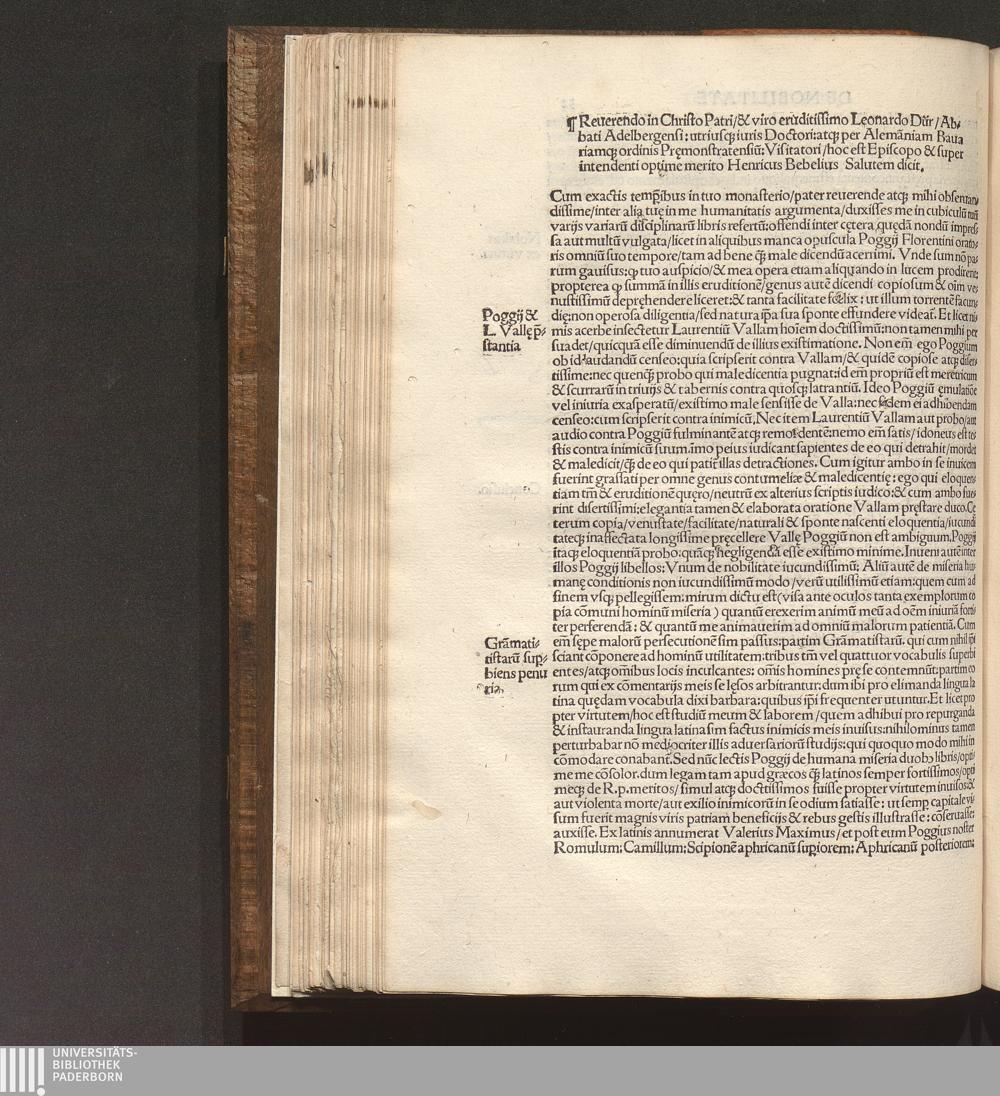 ¶ Reuerendo in Christo Patri/& viro eruditissimo Leonardo Dür/Ab-
bati Adelbergensi: utriusqȝ iuris Doctori: atqȝ per Alemāniam Baua
riamqȝ ordinis Pręmonstratensiū: Visitatori/hoc est Episcopo & super
intendenti optime merito Henricus Bebelius Salutem dicit.
Cum exactis temp̄ibus in tuo monasterio/pater reuerende atqȝ mihi obseruan
dissime/inter alia tuę in me humanitatis argumenta/duxisses me in cubiculū tuū
varijs variarū disciplinarū libris refertū: offendi inter cętera quędā nondū impres
sa aut multū vulgata/licet in aliquibus manca opuscula Poggij Florentini orato-
ris omniū suo tempore/tam ad bene q̄ȝ male dicendū acerrimi. Vnde sum nō pa-
rum gauisus: ꝙ tuo auspicio/& mea opera etiam aliquando in lucem prodirent:
propterea ꝙ summā in illis eruditionē/genus autē dicendi copiosum & oīm ve-
nustissimū depręhendere liceret: & tanta facilitate fœlix: ut illum torrentē facun-
dię: non operosa diligentia/sed natura ip̄a sua sponte effundere videat̄. Et licet ni-
mis acerbe insectetur Laurentiū Vallam hoīem doctissimū: non tamen mihi per
suadet/quicquā esse diminuendū de illius existimatione. Non em̄ ego Poggium
ob id laudandū censeo: quia scripserit contra Vallam/& quidē copiose atqȝ diser-
tissime: nec quenqȝ probo qui maledicentia pugnat: id em̄ propriū est meretricum
& scurrarū in triuijs & tabernis contra quosqȝ latrantiū. Ideo Poggiū ęmulatiōe
vel iniuria exasperatū/existimo male sensisse de Valla: nec fidem ei adhibendam
censeo: cum scripserit contra inimicū. Nec item Laurentiū Vallam aut probo/aut
audio contra Poggiū fulminantē atqȝ remordentē: nemo em̄ satis/idoneus est tes
stis contra inimicū suum: imo peius iudicant sapientes de eo qui detrahit/mordet
& maledicit/q̄ȝ de eo qui patit̄ illas detractiones. Cum igitur ambo in se inuicem
fuerint grassati per omne genus contumeliæ & maledicentię: ego qui eloquen-
tiam tm̄ & eruditionē quęro/neutrū ex alterius scriptis iudico: & cum ambo fue-
rint disertissimi: elegantia tamen & elaborata oratione Vallam pręstare duco. Ce
terum copia/venustate/facilitate/naturali & sponte nascenti eloquentia/iucundi
tateqȝ inaffectata longissime pręcellere Vallę Poggiū non est ambiguum. Poggij
itaqȝ eloquentiā probo: quāqȝ negligendā esse existimo minime. Inueni autē inter
illos Poggij libellos: Vnum de nobilitate iucundissimū: Aliū autē de miseria hu-
manę conditionis non iucundissimū modo/verū utilissimū etiam: quem cum ad
finem vsqȝ pellegissem: mirum dictu est (visa ante oculos tanta exemplorum co
pia cōmuni hominū miseria) quantū erexerim animū meū ad oēm iniuriā forti
ter perferendā: & quantū me animauerim ad omniū malorum patientiā. Cum
em̄ sępe malorū persecutionē sim passus: partim Grāmatistarū. qui cum nihil ip̄i
sciant cōponere ad hominū utilitatem: tribus tm̄ vel quattuor vocabulis superbi
entes/atqȝ om̄ibus locis inculcantes: om̄is homines prę se contemnūt: partim eo
rum qui ex cōmentarijs meis se lęsos arbitrantur: dum ibi pro elimanda lingua la
tina quędam vocabula dixi barbara: quibus ip̄i frequenter utuntur. Et licet pro
pter virtutem/hoc est studiū meum & laborem/quem adhibui pro repurganda
& instauranda lingua latina sim factus inimicis meis inuisus: nihilominus tamen
perturbabar nō mediocriter illis aduersariorū studijs: qui quoquo modo mihi in
cōmodare conabant̄. Sed nūc lectis Poggij de humana miseria duob libris/opti-
me me cōsolor. dum legam tam apud græcos q̄ȝ latinos semper fortissimos/opti
meqȝ de R.p. meritos/simul atqȝ doctissimos fuisse propter virtutem inuisos: &
aut violenta morte/aut exilio inimicorū in se odium satiasse: ut semp̱ capitale vi-
sum fuerit magnis viris patriam beneficijs & rebus gestis illustrasse: cōseruasse:
auxisse. Ex latinis annumerat Valerius Maximus/et post eum Poggius noster
Romulum: Camillum: Scipionē aphricanū sup̱iorem: Aphricanū posteriorem:
Poggij &
L. Vallę p̄-
stantia
Grāmati-
tistarū sup̱-
biens penu
ria.
UNIVERSITÄTS-
BIBLIOTHEK
PADERBORN